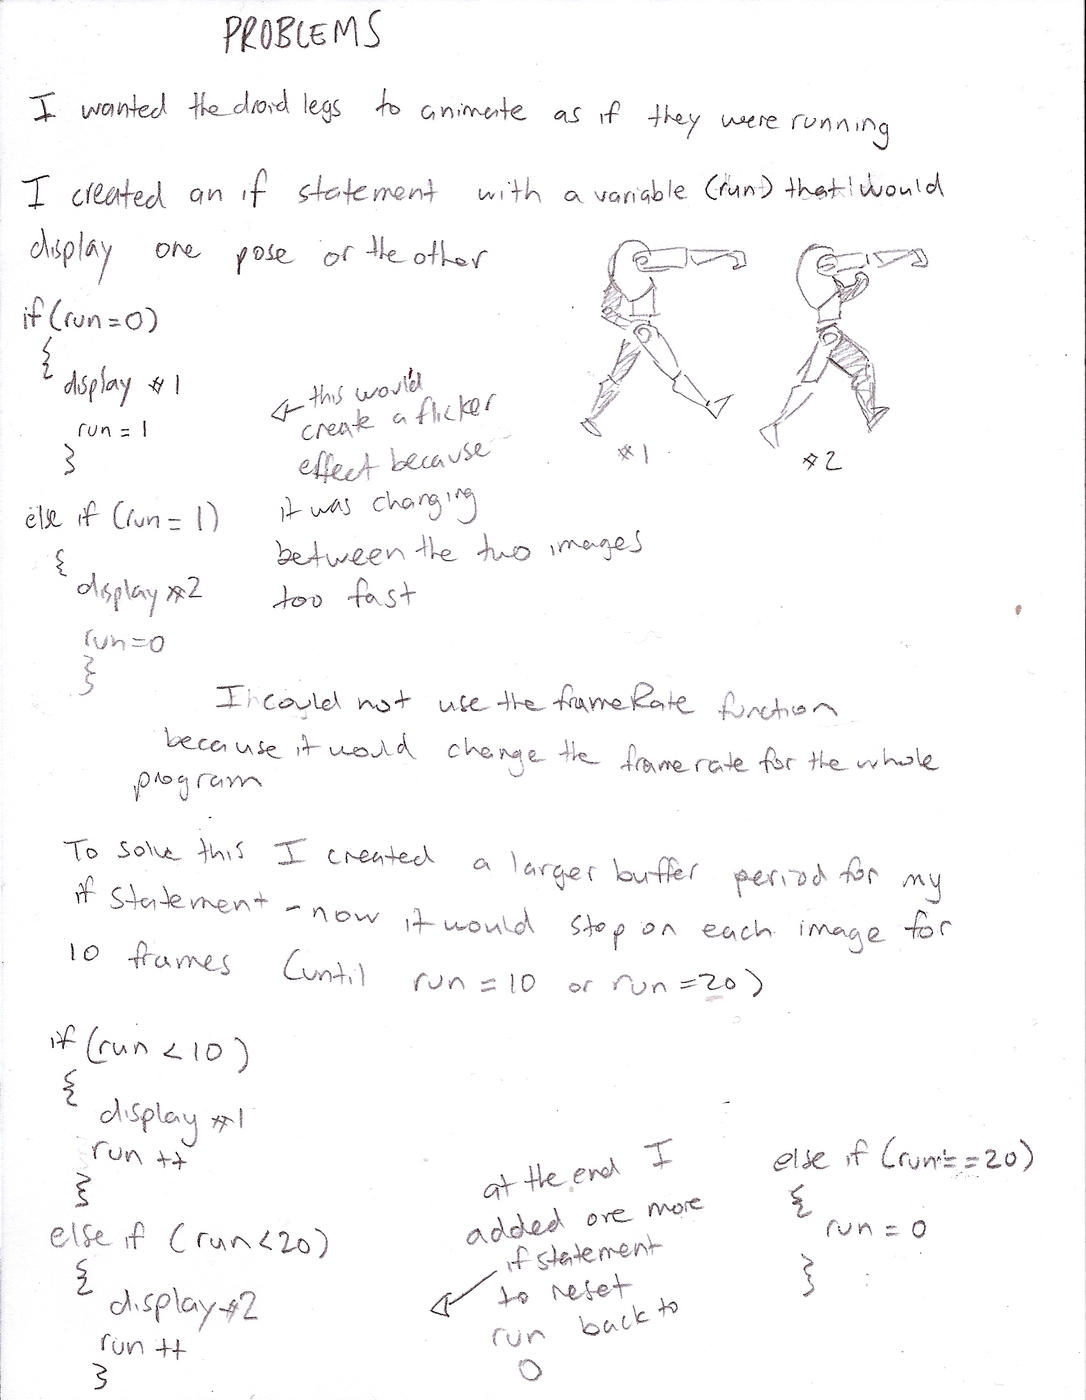 PROBLEMS
I wanted the droid legs to animate as if they were running
I created an if statement with a variable (run) that would
display one pose or the other
if (run=0)
{
display #1
run = 1
}
else if (run = 1)
{
display #2
run=0
}
this would
create a flicker
effect because
it was changing
between the two images
too fast
#1
#2
I could not use the frameRate function
because it would change the frame rate for the whole
program
To solve this I created a larger buffer period for my
if statement - now it would stop on each image for
10 frames (until run = 10 or run = 20)
if (run < 10)
{
display #1
run ++
}
else if (run < 20)
{
display #2
run ++
}
at the end I
added one more
if statement
to reset
run back to
0
else if (run == 20)
{
run = 0
}